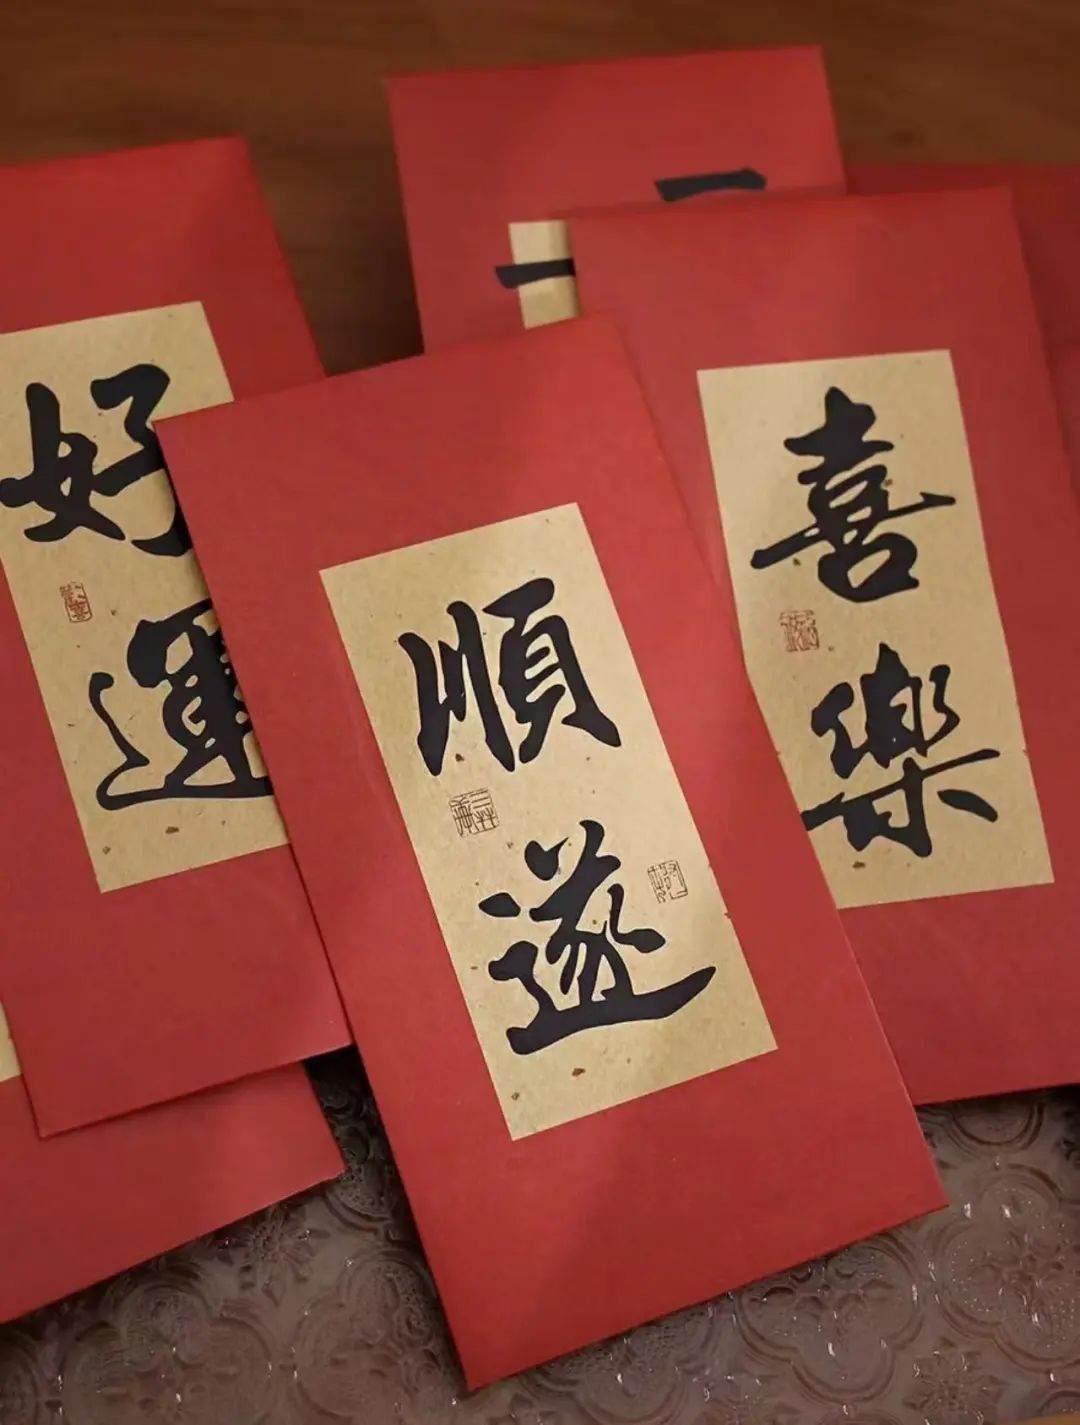 好
運
順
遂
喜
樂